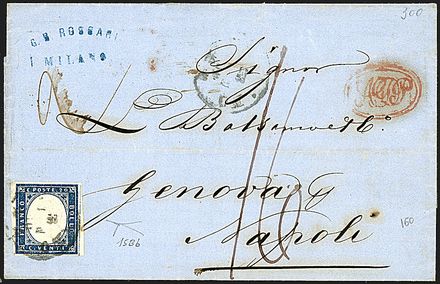 300
G. B. ROSSARI
MILANO
Signor
L. Balsamo & Co.
Genova
Napoli
1586
160
C. POSTE 20
FRANCO
BOLLO
C. VENTI